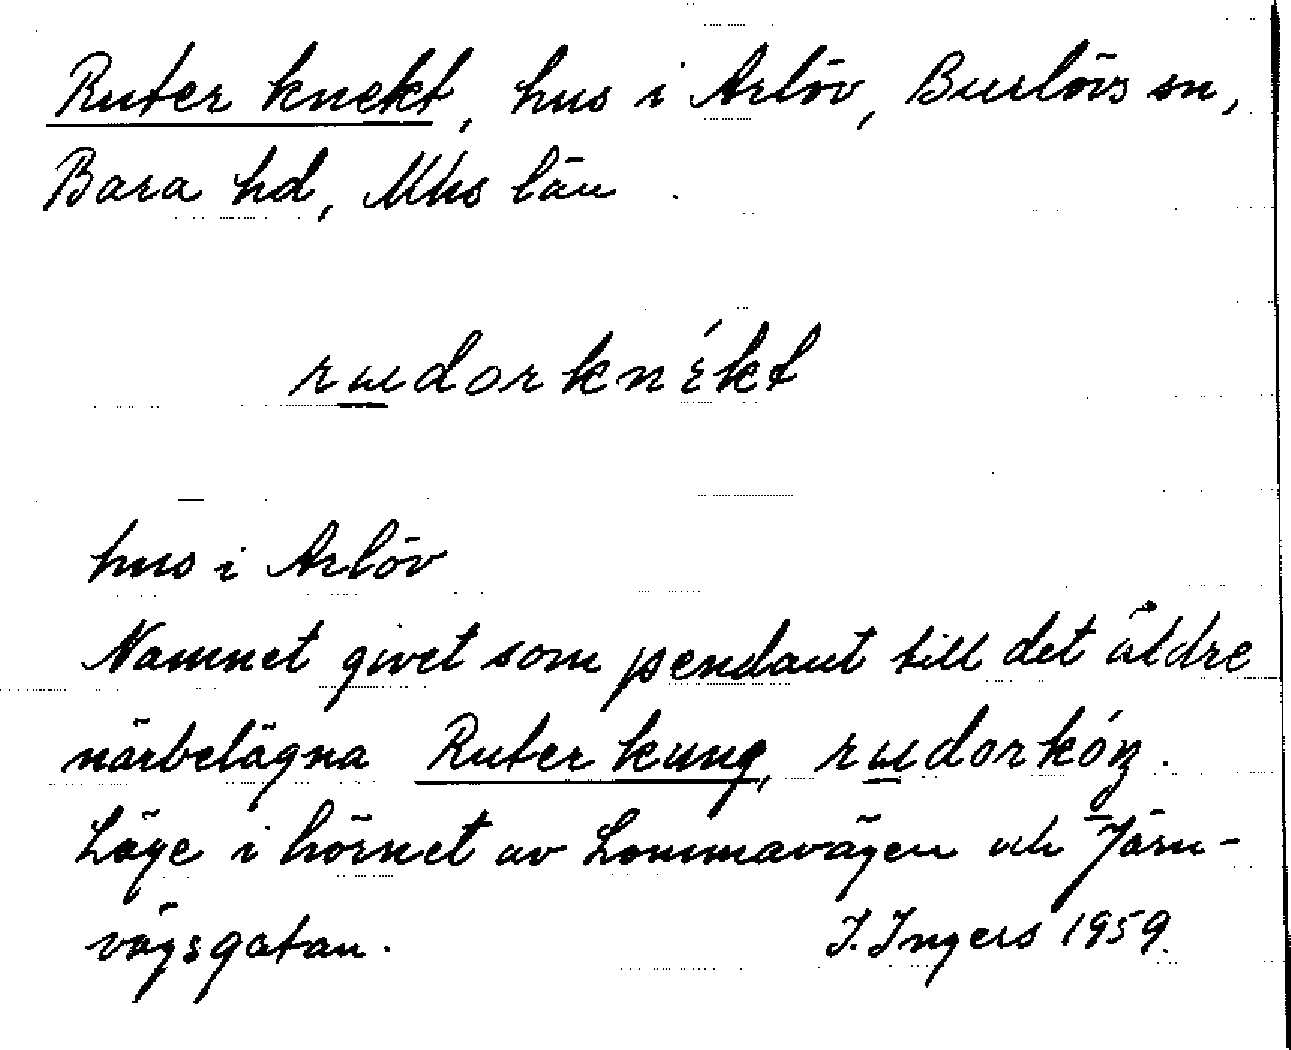 Ruter knekt, hus i Arlöv, Burlövs sn,
Bara hd, Mhs län.
rɯdorknɛ́kt
hus i Arlöv
Namnet givet som pendant till det äldre
närbelägna Ruter kung, rɯdorkóŋ.
Läge i hörnet av Lommavägen och Järn-
vägsgatan. I. Ingers 1959.